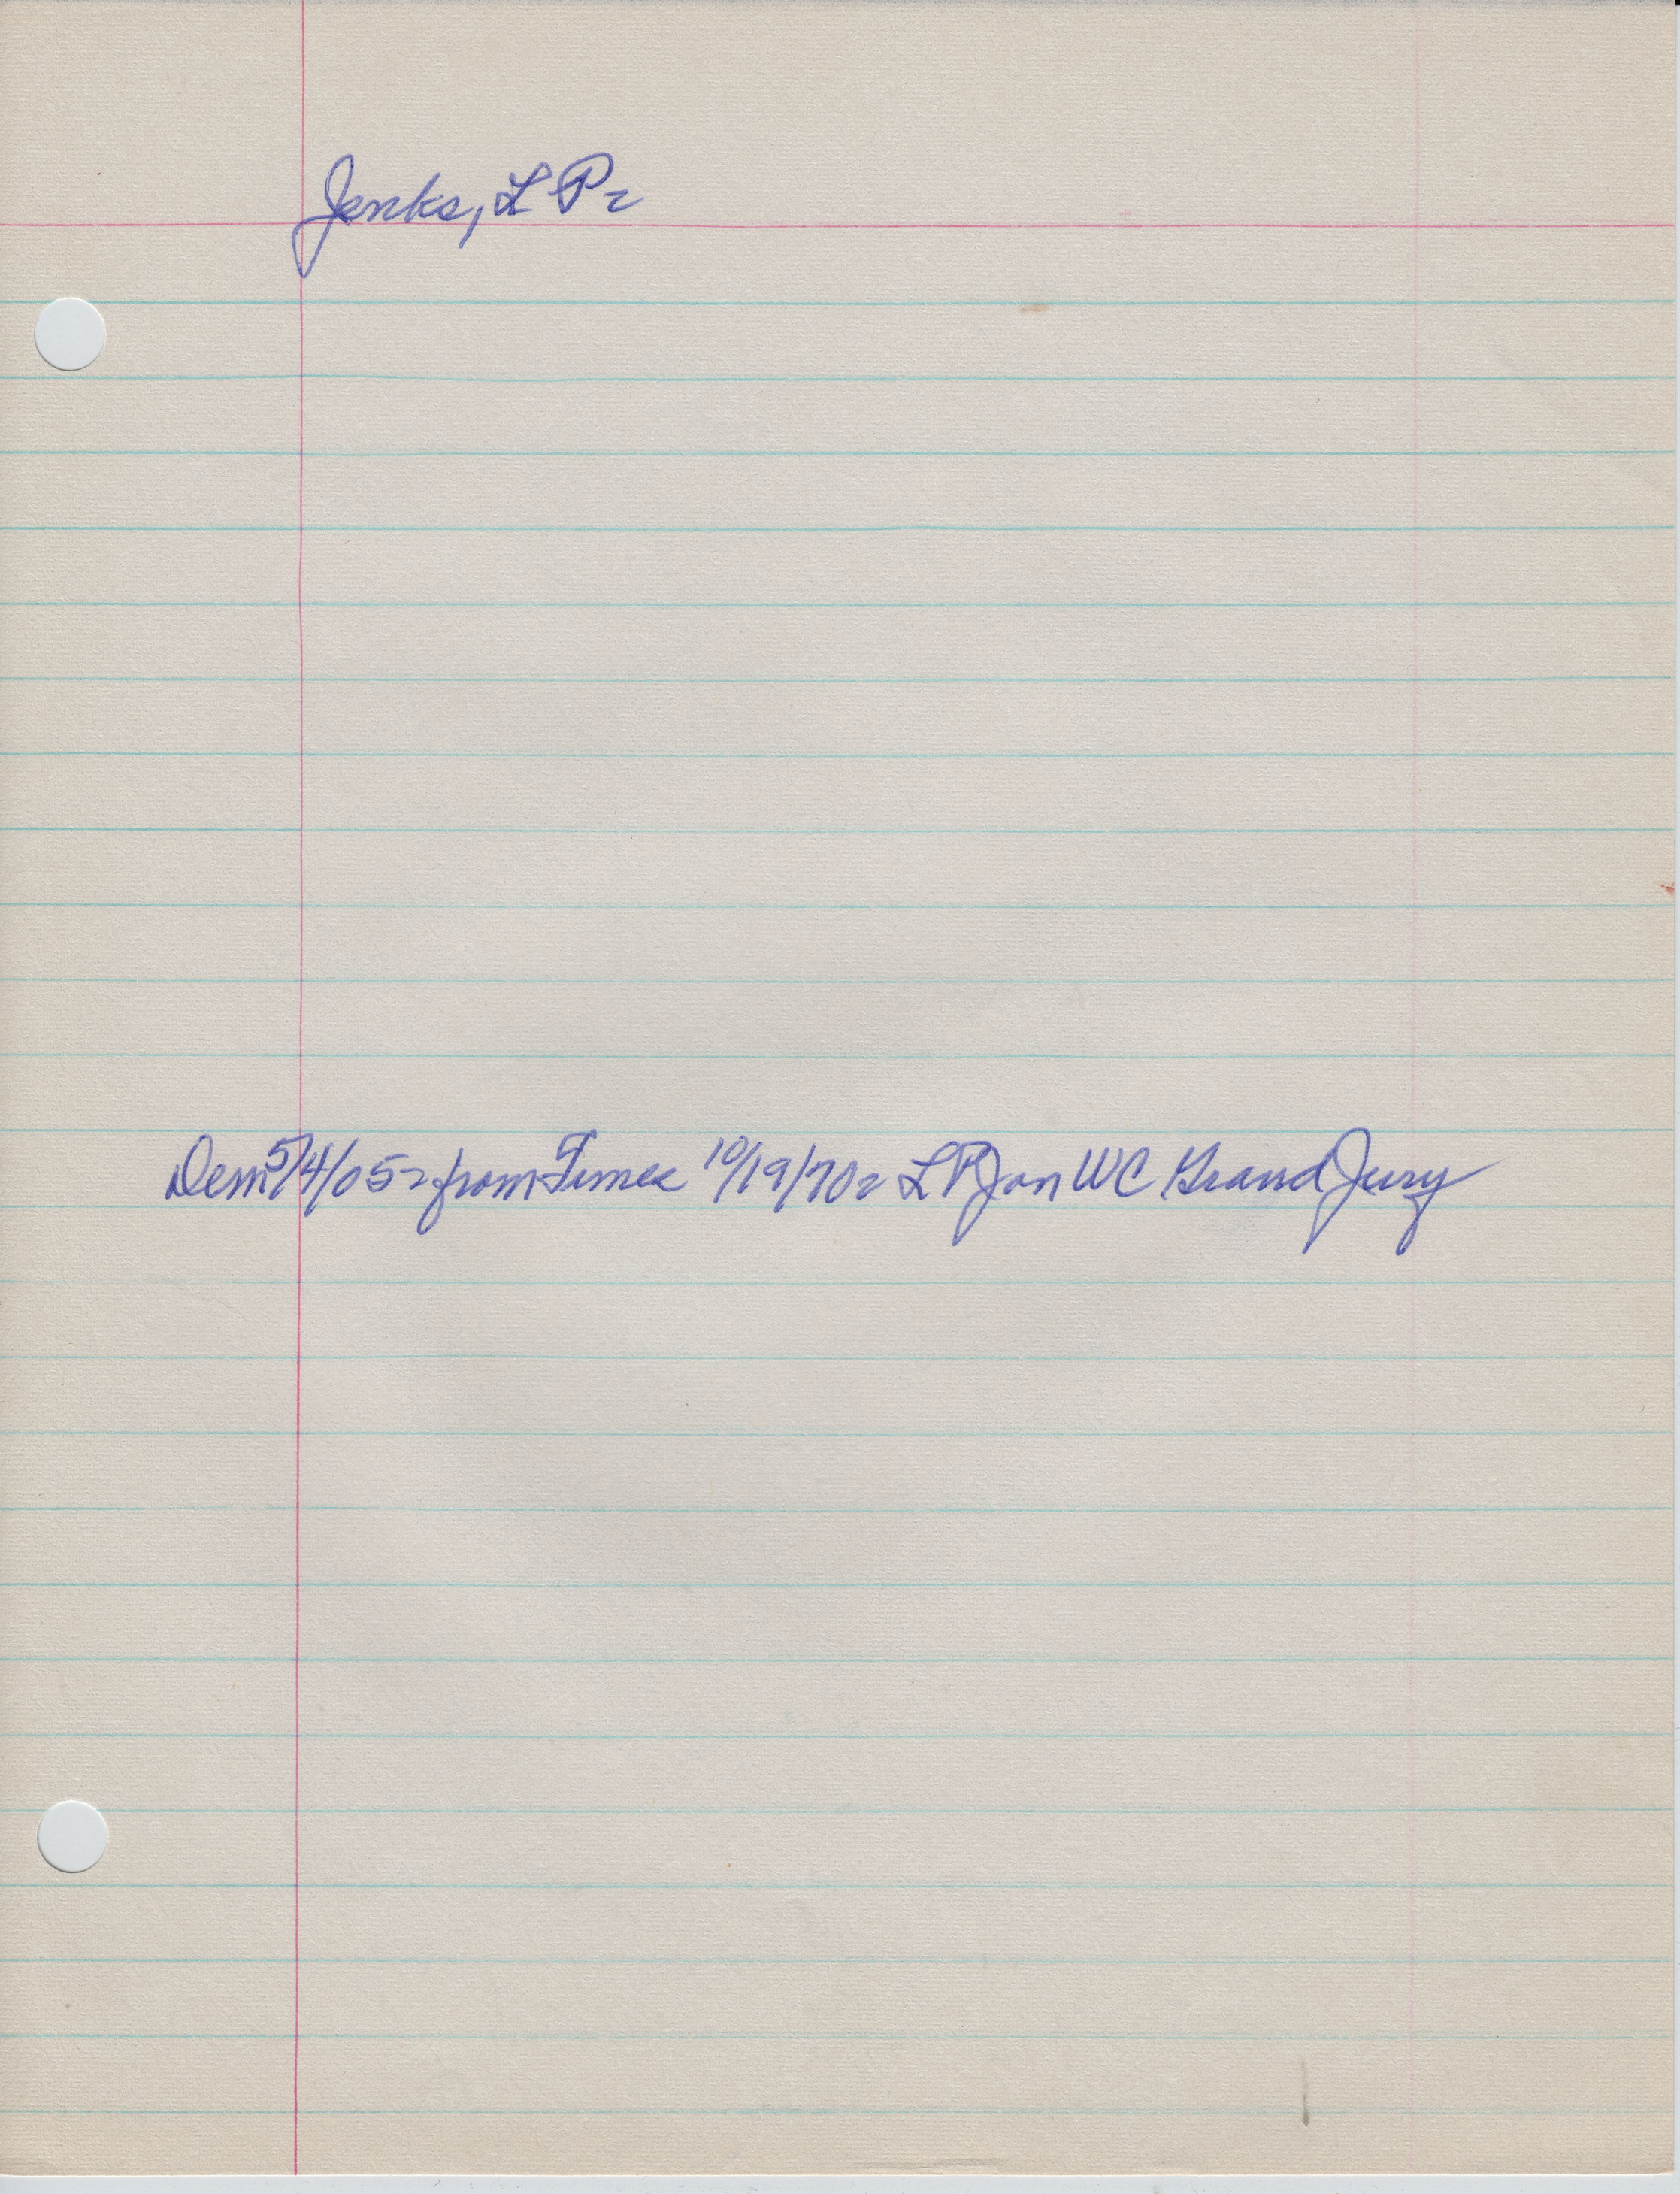 Jenks, L P-
Dem 5/4/05- from Times 10/19/70- L P J on WC Grand Jury